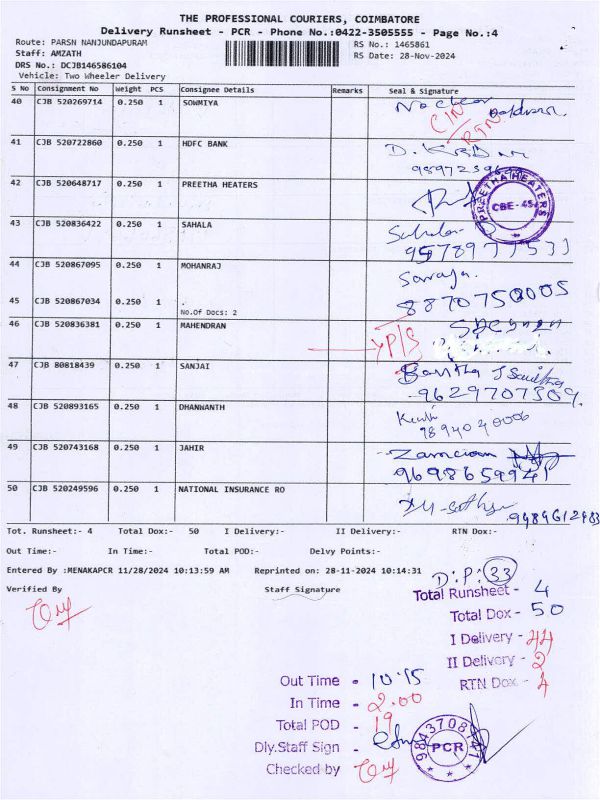 THE PROFESSIONAL COURIERS, COIMBATORE
Delivery Runsheet - PCR - Phone No.:0422-3505555 - Page No.:4
Route: PARSN NANJUNDAPURAM
RS No.: 1465861
Staff: AMZATH
RS Date: 28-Nov-2024
DRS No.: DCJB146586104
Vehicle: Two Wheeler Delivery
S No Consignment No Weight PCS Consignee Details Remarks Seal & Signature
40 CJB 520269714 0.250 1 SOWMIYA No
RTN
41 CJB 520722860 0.250 1 HDFC BANK
42 CJB 520648717 0.250 1 PREETHA HEATERS
PREETHA HEATERS
CBE - 45
43 CJB 520836422 0.250 1 SAHALA
9578977533
44 CJB 520867095 0.250 1 MOHANRAJ
8870750005
45 CJB 520867034 0.250 1
No.Of Docs: 2
46 CJB 520836381 0.250 1 MAHENDRAN
47 CJB 80818439 0.250 1 SANJAI
9629707309
48 CJB 520893165 0.250 1 DHANWANTH
49 CJB 520743168 0.250 1 JAHIR
9698659941
50 CJB 520249596 0.250 1 NATIONAL INSURANCE RO
9489612983
Tot. Runsheet:- 4 Total Dox:- 50 I Delivery:- II Delivery:- RTN Dox:-
Out Time:- In Time:- Total POD:- Delvy Points:-
Entered By :MENAKAPCR 11/28/2024 10:13:59 AM Reprinted on: 28-11-2024 10:14:31
Verified By Staff Signature
D:P:33
Total Runsheet - 4
Total Dox - 50
I Delivery - 44
II Delivery - 2
RTN Dox - 4
Out Time - 10.15
In Time - 2.00
Total POD - 19
Dly.Staff Sign -
Checked by
PCR